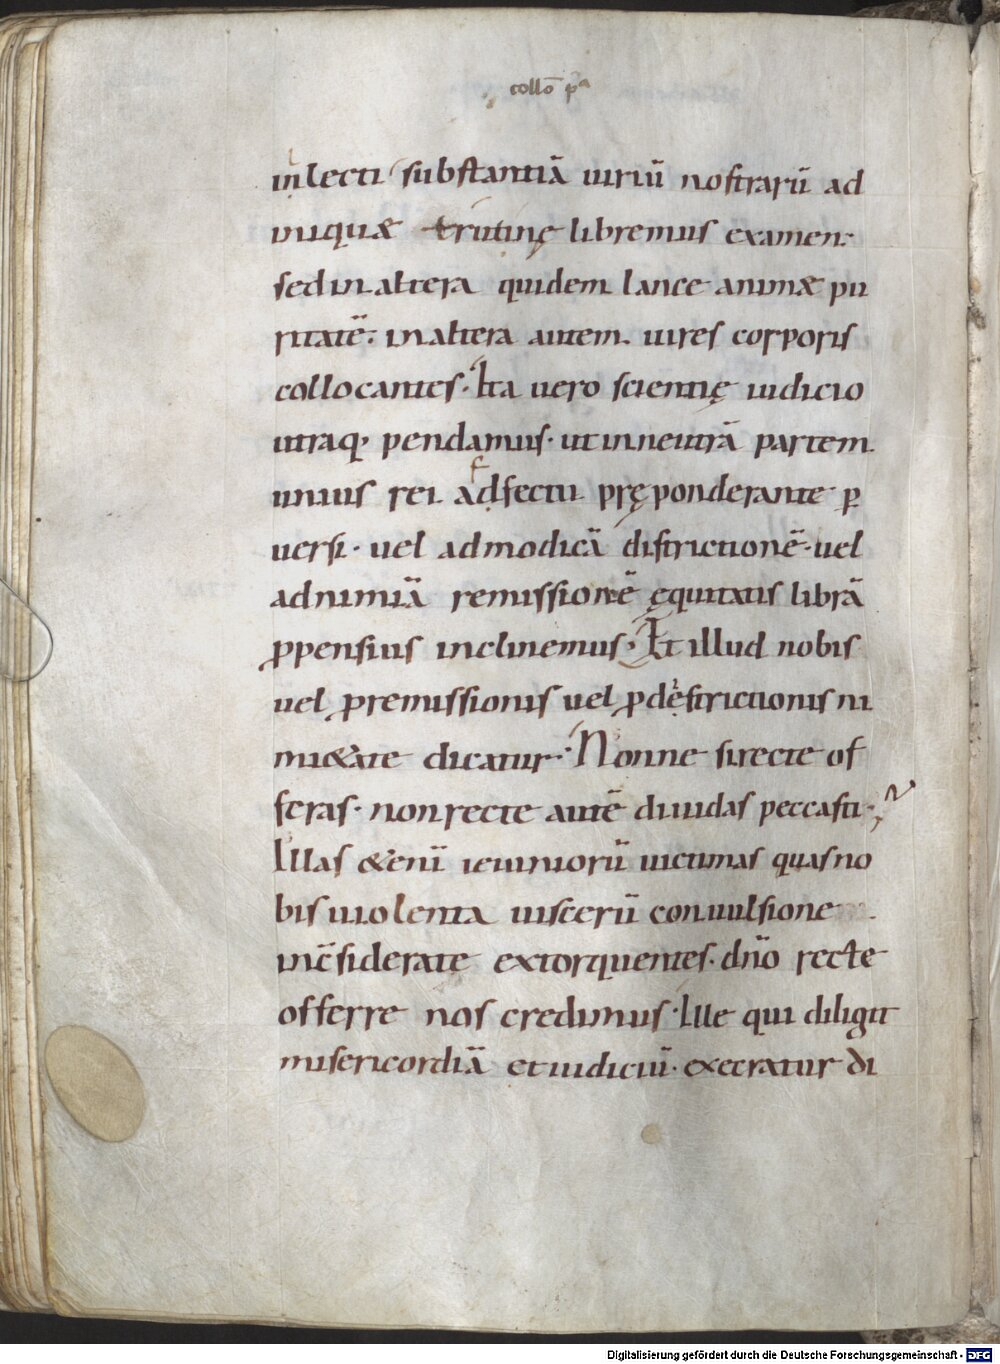 collō pᵃ
inlecti substantiā uiriū nostrarū ad
iniquæ trutinę libremus examen.
sed in altera quidem lance animæ pu
ritatē. in altera autem. uires corporis
collocantes. Ita uero scientię iudicio
utraq, pendamus. ut in neutrā partem.
unius rei adfectu pręponderante ꝑ
uersi. uel ad modicā districtionē. uel
ad nimiā remissionē ęquitatis librā
ꝓpensius inclinemus. Et illud nobis
uel ꝓ remissionis uel ꝓ dęstrictionis ni
mi&ate dicatur. Nonne si recte of
feras. non recte autē diuidas peccasti.
Illas &enī ieiuniorū uictimas quas no
bis uiolenta uiscerū conuulsione
incsiderate extorquentes. dnō recte
offerre nos credimus. Ille qui diligit
misericordiā et iudiciū. execratur di
Digitalisierung gefördert durch die Deutsche Forschungsgemeinschaft - DFG